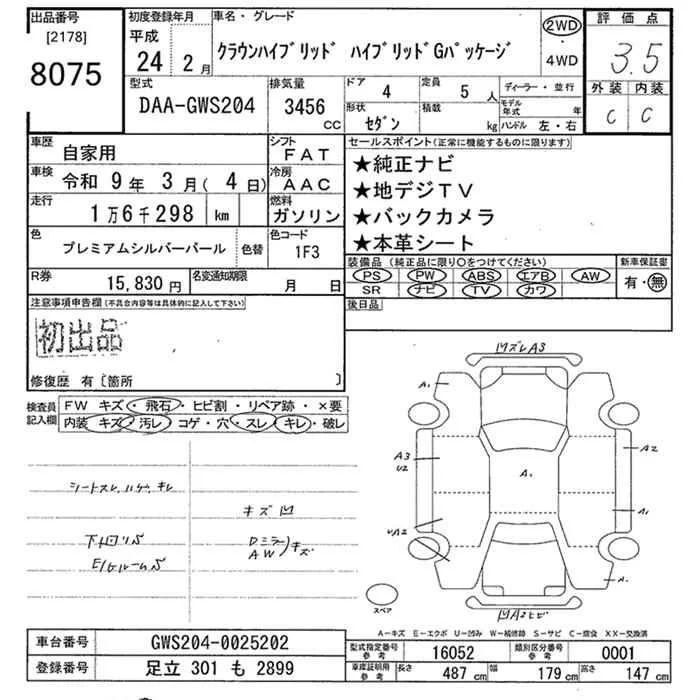 出品番号
[2178]
8075
初度登録年月
平成
24 2月
車名・グレード
クラウンハイブリッド ハイブリッドGパッケージ
2WD
4WD
評価点
3.5
外装 内装
C C
型式
DAA-GWS204
排気量
3456
CC
ドア
4
定員
5 人
形状
セダン
積載
kg
ディーラー・並行
モデル年式 年
ハンドル 左・右
車歴
自家用
シフト
FAT
車検
令和 9年 3月( 4日)
冷房
AAC
走行
1万6千298 km
燃料
ガソリン
色
プレミアムシルバーパール
色替
色コード
1F3
R券
15,830円
名変通知期限
月 日
セールスポイント(正常に機能するものに限ります)
★純正ナビ
★地デジTV
★バックカメラ
★本革シート
装備品 (純正品に限り○をつけてください)
PS PW ABS エアB AW
SR ナビ TV カワ
新車保証書
有・無
後日品
注意事項申告欄(不具合内容等は具体的に記入して下さい)
初出品
修復歴 有〔箇所 〕
検査員記入欄
FW キズ・飛石・ヒビ割・リペア跡・×要
内装 キズ・汚レ・コゲ・穴・スレ・キレ・破レ
シートスレ,ハゲ,キレ
キズ凹
下回りS
E/GルームS
Dミラー
AW
キズ
凹ズレA3
A1
A3
U2
A2
A1
A1
UA2
A1
凹A2ヒビ
スペア
A-キズ E-エクボ U-凹み W-補修跡 S-サビ C-腐食 XX-交換済
車台番号
GWS204-0025202
登録番号
足立 301 も 2899
型式指定番号
参考
16052
類別区分番号
参考
0001
車庫証明用
参考
長さ 487 cm 幅 179 cm 高さ 147 cm